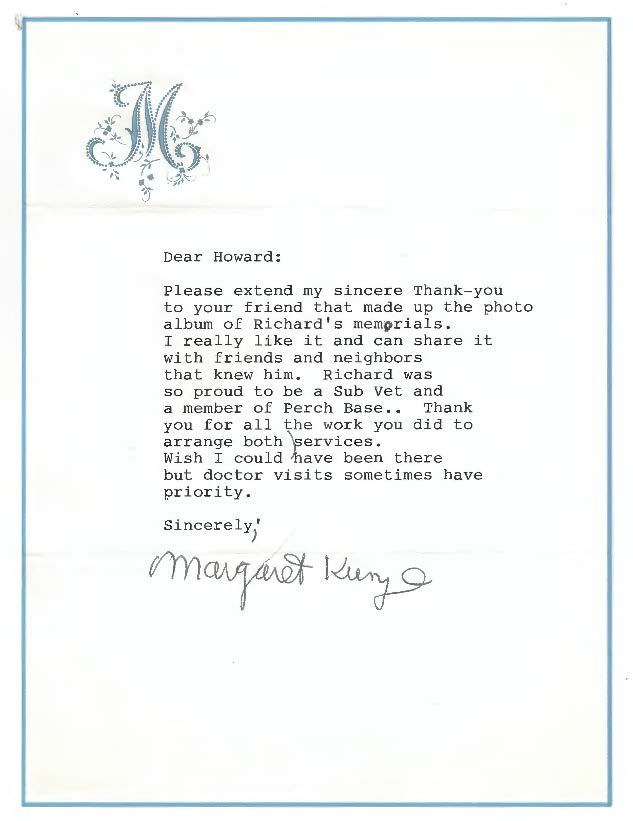 M
Dear Howard:
Please extend my sincere Thank-you
to your friend that made up the photo
album of Richard's memorials.
I really like it and can share it
with friends and neighbors
that knew him. Richard was
so proud to be a Sub Vet and
a member of Perch Base.. Thank
you for all the work you did to
arrange both services.
Wish I could have been there
but doctor visits sometimes have
priority.
Sincerely,
Margaret